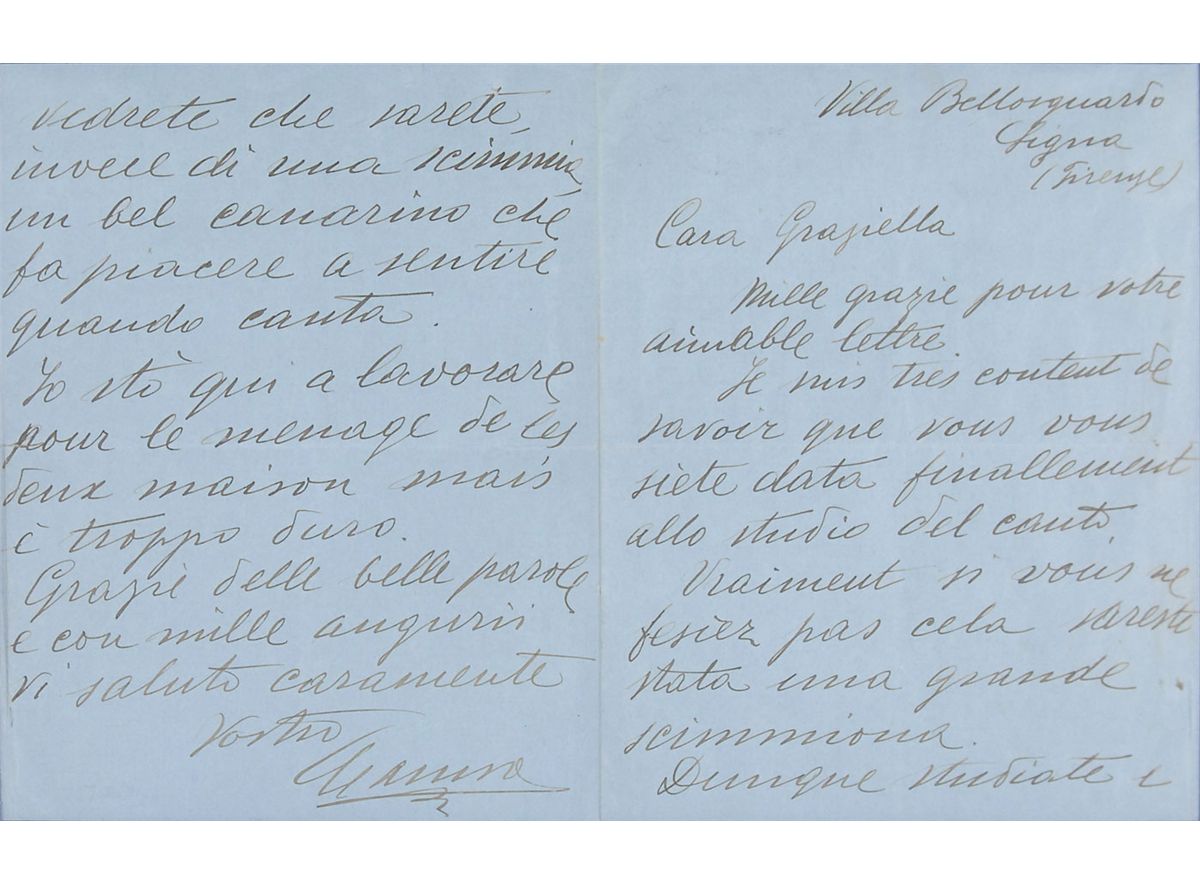 Villa Bellosguardo
Signa
(Firenze)
Cara Graziella
Mille grazie pour votre
aimable lettre.
Je suis tres content de
savoir que vous vous
siete data finallement
allo studio del canto.
Vraiment si vous ne
fesiez pas cela sareste
stata una grande
scimmiona.
Dunque studiate e
vedrete che sarete,
invece di una scimmia,
un bel canarino che
fa piacere a sentire
quando canta.
Io stò qui a lavorare
pour le menage de les
deux maison mais
è troppo duro.
Grazie delle belle parole
e con mille augurii
vi saluto caramente
Vostro
Caruso